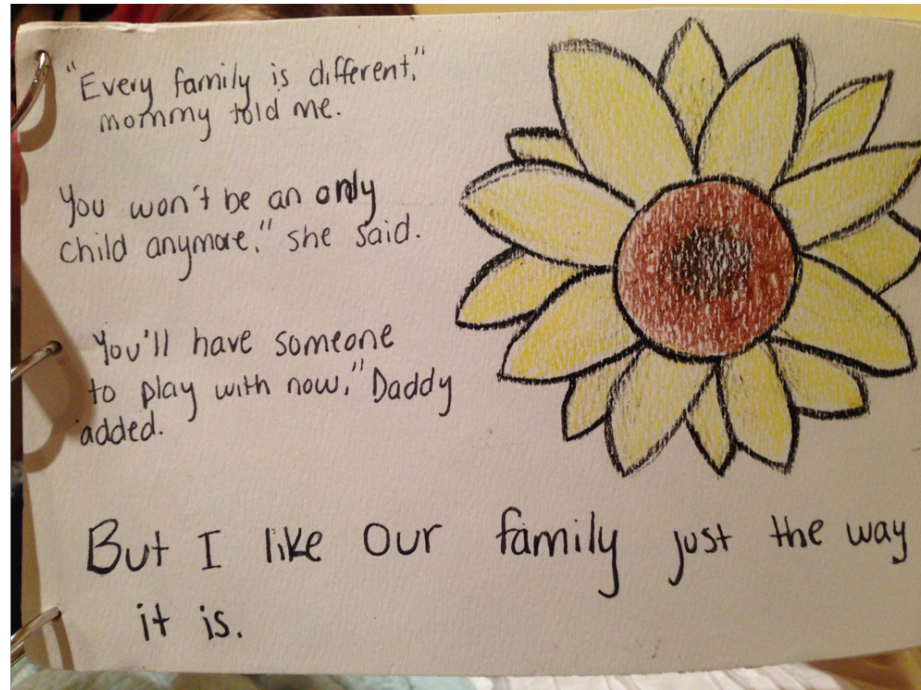 "Every family is different,"
mommy told me.
You won't be an only
child anymore," she said.
You'll have someone
to play with now," Daddy
added.
But I like our family just the way
it is.